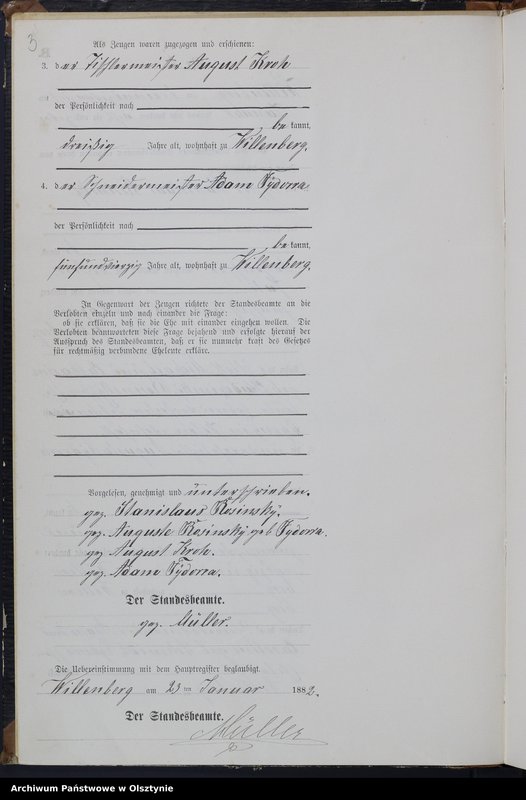 3
Als Zeugen waren zugezogen und erschienen:
3. der Tischlermeister August Kroh
der Persönlichkeit nach
be kannt,
dreißig Jahre alt, wohnhaft zu Willenberg.
4. der Schneidermeister Adam Sydorra
der Persönlichkeit nach
be kannt,
fünfundvierzig Jahre alt, wohnhaft zu Willenberg.
In Gegenwart der Zeugen richtete der Standesbeamte an die
Verlobten einzeln und nach einander die Frage:
ob sie erklären, daß sie die Ehe mit einander eingehen wollen. Die
Verlobten beantworteten diese Frage bejahend und erfolgte hierauf der
Ausspruch des Standesbeamten, daß er sie nunmehr kraft des Gesetzes
für rechtmäßig verbundene Eheleute erkläre.
Vorgelesen, genehmigt und unterschrieben.
gez. Stanislaus Rosinsky.
gez. Auguste Rosinsky geb Sydorra.
gez. August Kroh.
gez. Adam Sydorra.
Der Standesbeamte.
gez. Müller.
Die Uebereinstimmung mit dem Hauptregister beglaubigt
Willenberg am 23 ten Januar 1882.
Der Standesbeamte.
Müller
Archiwum Państwowe w Olsztynie